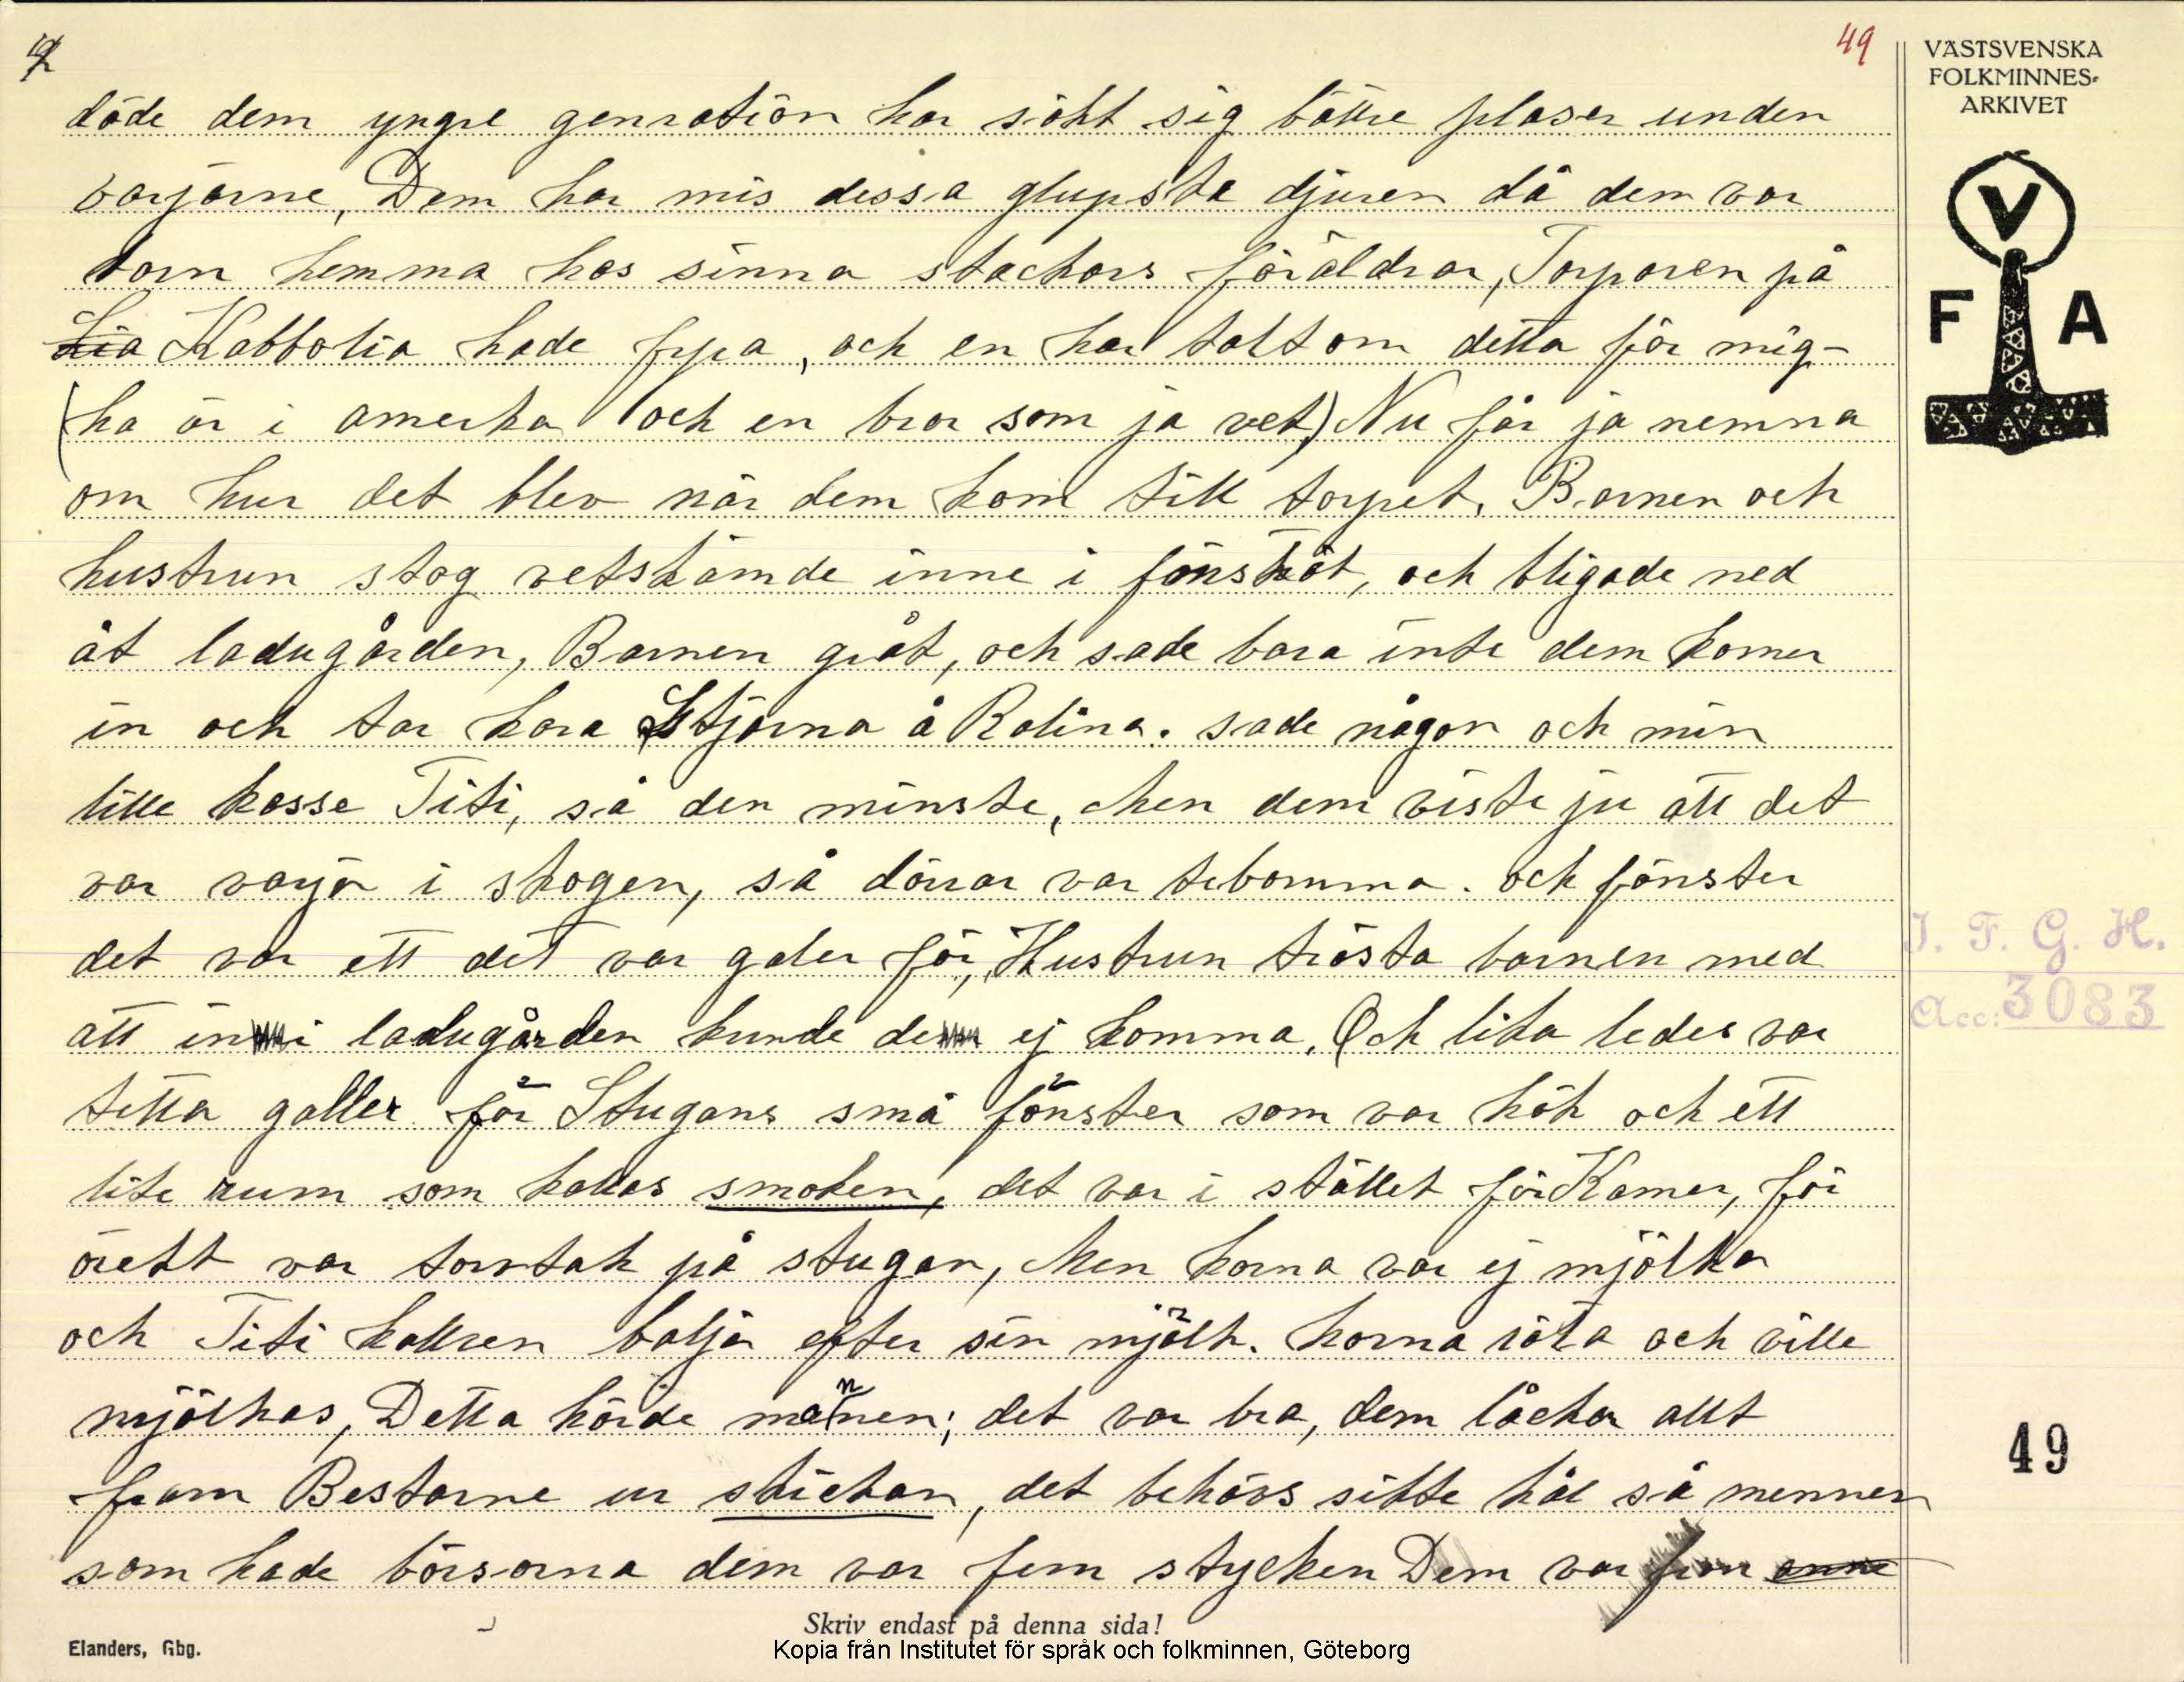 49
VÄSTSVENSKA
FOLKMINNES-
ARKIVET
döde dem yngre genration har sökt sig bättre plaser unden
varjarne, Dem har mis dessa glupsta djuren då dem var
barn hemma hos sinna stackars föräldrar, Torparen på
Lia Kabbolia hade fyra, och en har talt om detta för mig-
(ha är i amerka och en bror som ja vet) Nu får ja nemna
om hur det blev när dem kom till torpet. Barnen och
hustrun stog vetskämde inne i fönstöt, och bligade ned
åt ladugården, Barnen gråt, och sade bara inte dem komer
in och tar kara Stjärna å Rolina. sade någon och min
lille kosse Titi, så den minste, Men dem viste ju att det
var varjar i skogen, så dörrar var tebomma. och fönster
det var ett det var galer för, Hustrun trösta barnen med
att in i ladugården kunde de ej komma. Och lika ledes var
tetta galler för Stugans små fönster som var kök och ett
lite rum som kallas smoken, det var i stället för Kamer, för
övrett var torvtak på stugan, Men korna var ej mjölka
och Titi kallven bölja efter sin mjölk. korna röta och ville
mjölkas, Detta hörde mannen; det var bra, dem låckar allt
fram Bestarne ur skickan, det behövs sikte hål så mennen
som hade börsorna dem var fem stycken Dem var fron
V
F A
I. F. G. H.
Acc: 3083
49
Skriv endast på denna sida!
Elanders, Gbg.
Kopia från Institutet för språk och folkminnen, Göteborg